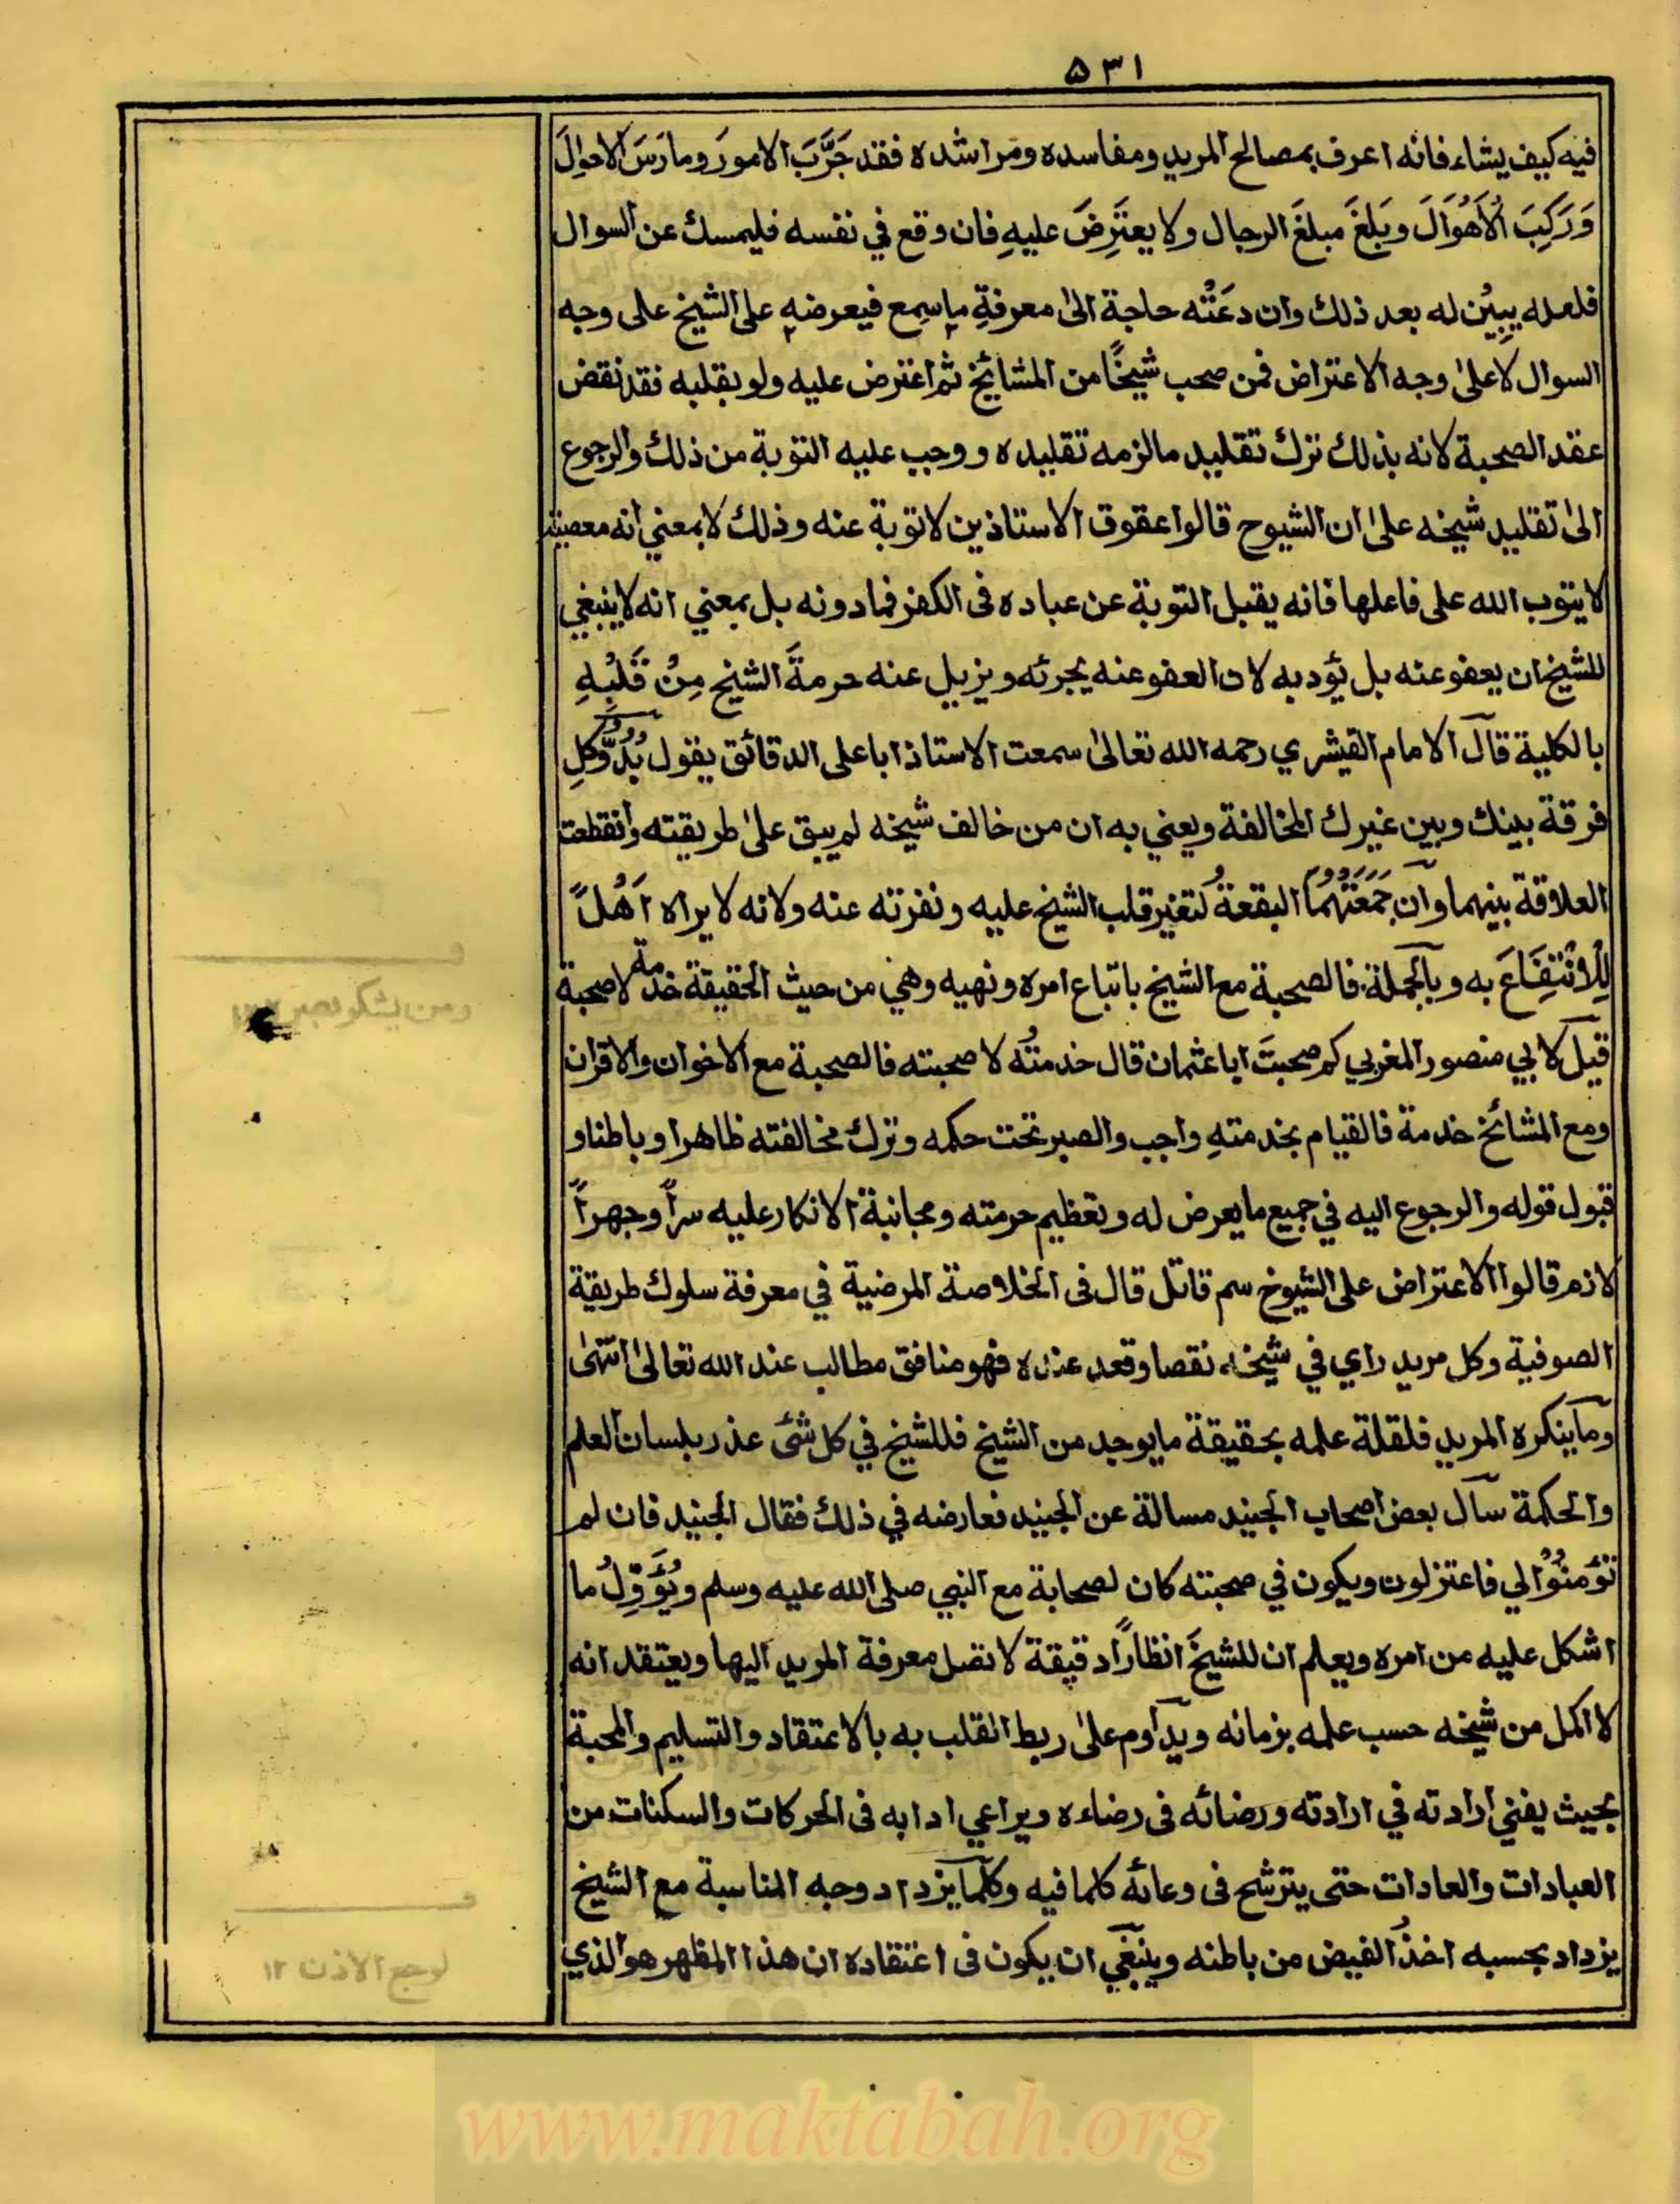 ٥٣١
فيه كيف يشاء فانه اعرف بمصالح المريد ومفاسده ومراشده فقد جَرَّبَ الامورَ ومارَسَ الاحوالَ
وَرَكِبَ الْاَهْوَالَ وبَلَغَ مبلغَ الرجال ولا يعتَرِضَ عليهِ فان وقع في نفسه فليمسك عن السوال
فلعله يبيّن له بعد ذلك وان دعَتْه حاجة الىٰ معرفةِ ماسمع فيعرضه على الشيخ على وجه
السوال لاعلىٰ وجه الاعتراض فمن صحب شيخًا من المشائخ ثم اعترض عليه ولو بقلبه فقد نقض
عقد الصحبة لانه بذلك ترك تقليد مالزمه تقليده ووجب عليه التوبة من ذلك والرجوع
الىٰ تقليد شيخه علىٰ ان الشيوح قالوا عقوق الاستاذين لاتوبة عنه وذلك لا بمعني انه معصية
لا يتوب الله على فاعلها فانه يقبل التوبة عن عباده فى الكفر فمادونه بل بمعني انه لا ينبغي
للشيخ ان يعفو عنه بل يؤدبه لان العفو عنه يجرئه ويزيل عنه حرمةَ الشيخ مِنْ قَلْبِهِ
بالكلية قال الامام القيشري رحمه الله تعالىٰ سمعت الاستاذ اباعلى الدقائق يقول بُدُوُّ كلِ
فرقة بينك وبين غيرك المخالفة ويعني به ان من خالف شيخه لم يبق علىٰ طريقته وانقطعت
العلاقة بينهما وان جَمَعَتْهُمَا البقعةُ لتغير قلب الشيخ عليه ونفرته عنه ولانه لا يراه اَهْلًا
لِلْاِنْتِفَاعِ به وبالجملة فالصحبة مع الشيخ باتباع امره ونهيه وهي من حيث الحقيقة خدمة لاصحبة
قيل لابي منصور المغربي كم صحبتَ اباعثمان قال خدمتُه لا صحبته فالصحبة مع الاخوان والاقران
ومع المشائخ خدمة فالقيام بخدمتهِ واجب والصبر تحت حكمه وترك مخالفته ظاهرا وباطنا و
قبول قوله والرجوع اليه في جميع مايعرض له وتعظيم حرمته ومجانبة الانكار عليه سراً وجهراً
لازم قالوا الاعتراض على الشيوخ سم قاتل قال فى الخلاصة المرضية في معرفة سلوك طريقة
الصوفية وكل مريد راي في شيخه نقصا وقعد عنده فهو منافق مطالب عند الله تعالىٰ انتهىٰ
وما ينكره المريد فلقلة علمه بحقيقة مايوجد من الشيخ فللشيخ في كل شئ عذر بلسان العلم
والحكمة سأل بعض اصحاب الجنيد مسالة عن الجنيد فعارضه في ذلك فقال الجنيد فان لم
تؤمنُوْا لي فاعتزلون ويكون في صحبته كان لصحابة مع النبي صلى الله عليه وسلم ويُؤَوِّلُ ما
اشكل عليه من امره ويعلم ان للشيخ انظاراً دقيقة لا تصل معرفة المريد اليها ويعتقد انه
لا اكمل من شيخه حسب علمه بزمانه ويداوم علىٰ ربط القلب به بالاعتقاد والتسليم والمحبة
بحيث يفني ارادته في ارادته ورضائه فى رضاءه ويراعي ادابه فى الحركات والسكنات من
العبادات والعادات حتى يترشح فى وعائه كلما فيه وكلما يزداد وجه المناسبة مع الشيخ
يزداد بحسبه اخذُ الفيض من باطنه وينبغي ان يكون فى اعتقاده ان هذا المظهر هو الذي
www.maktabah.org